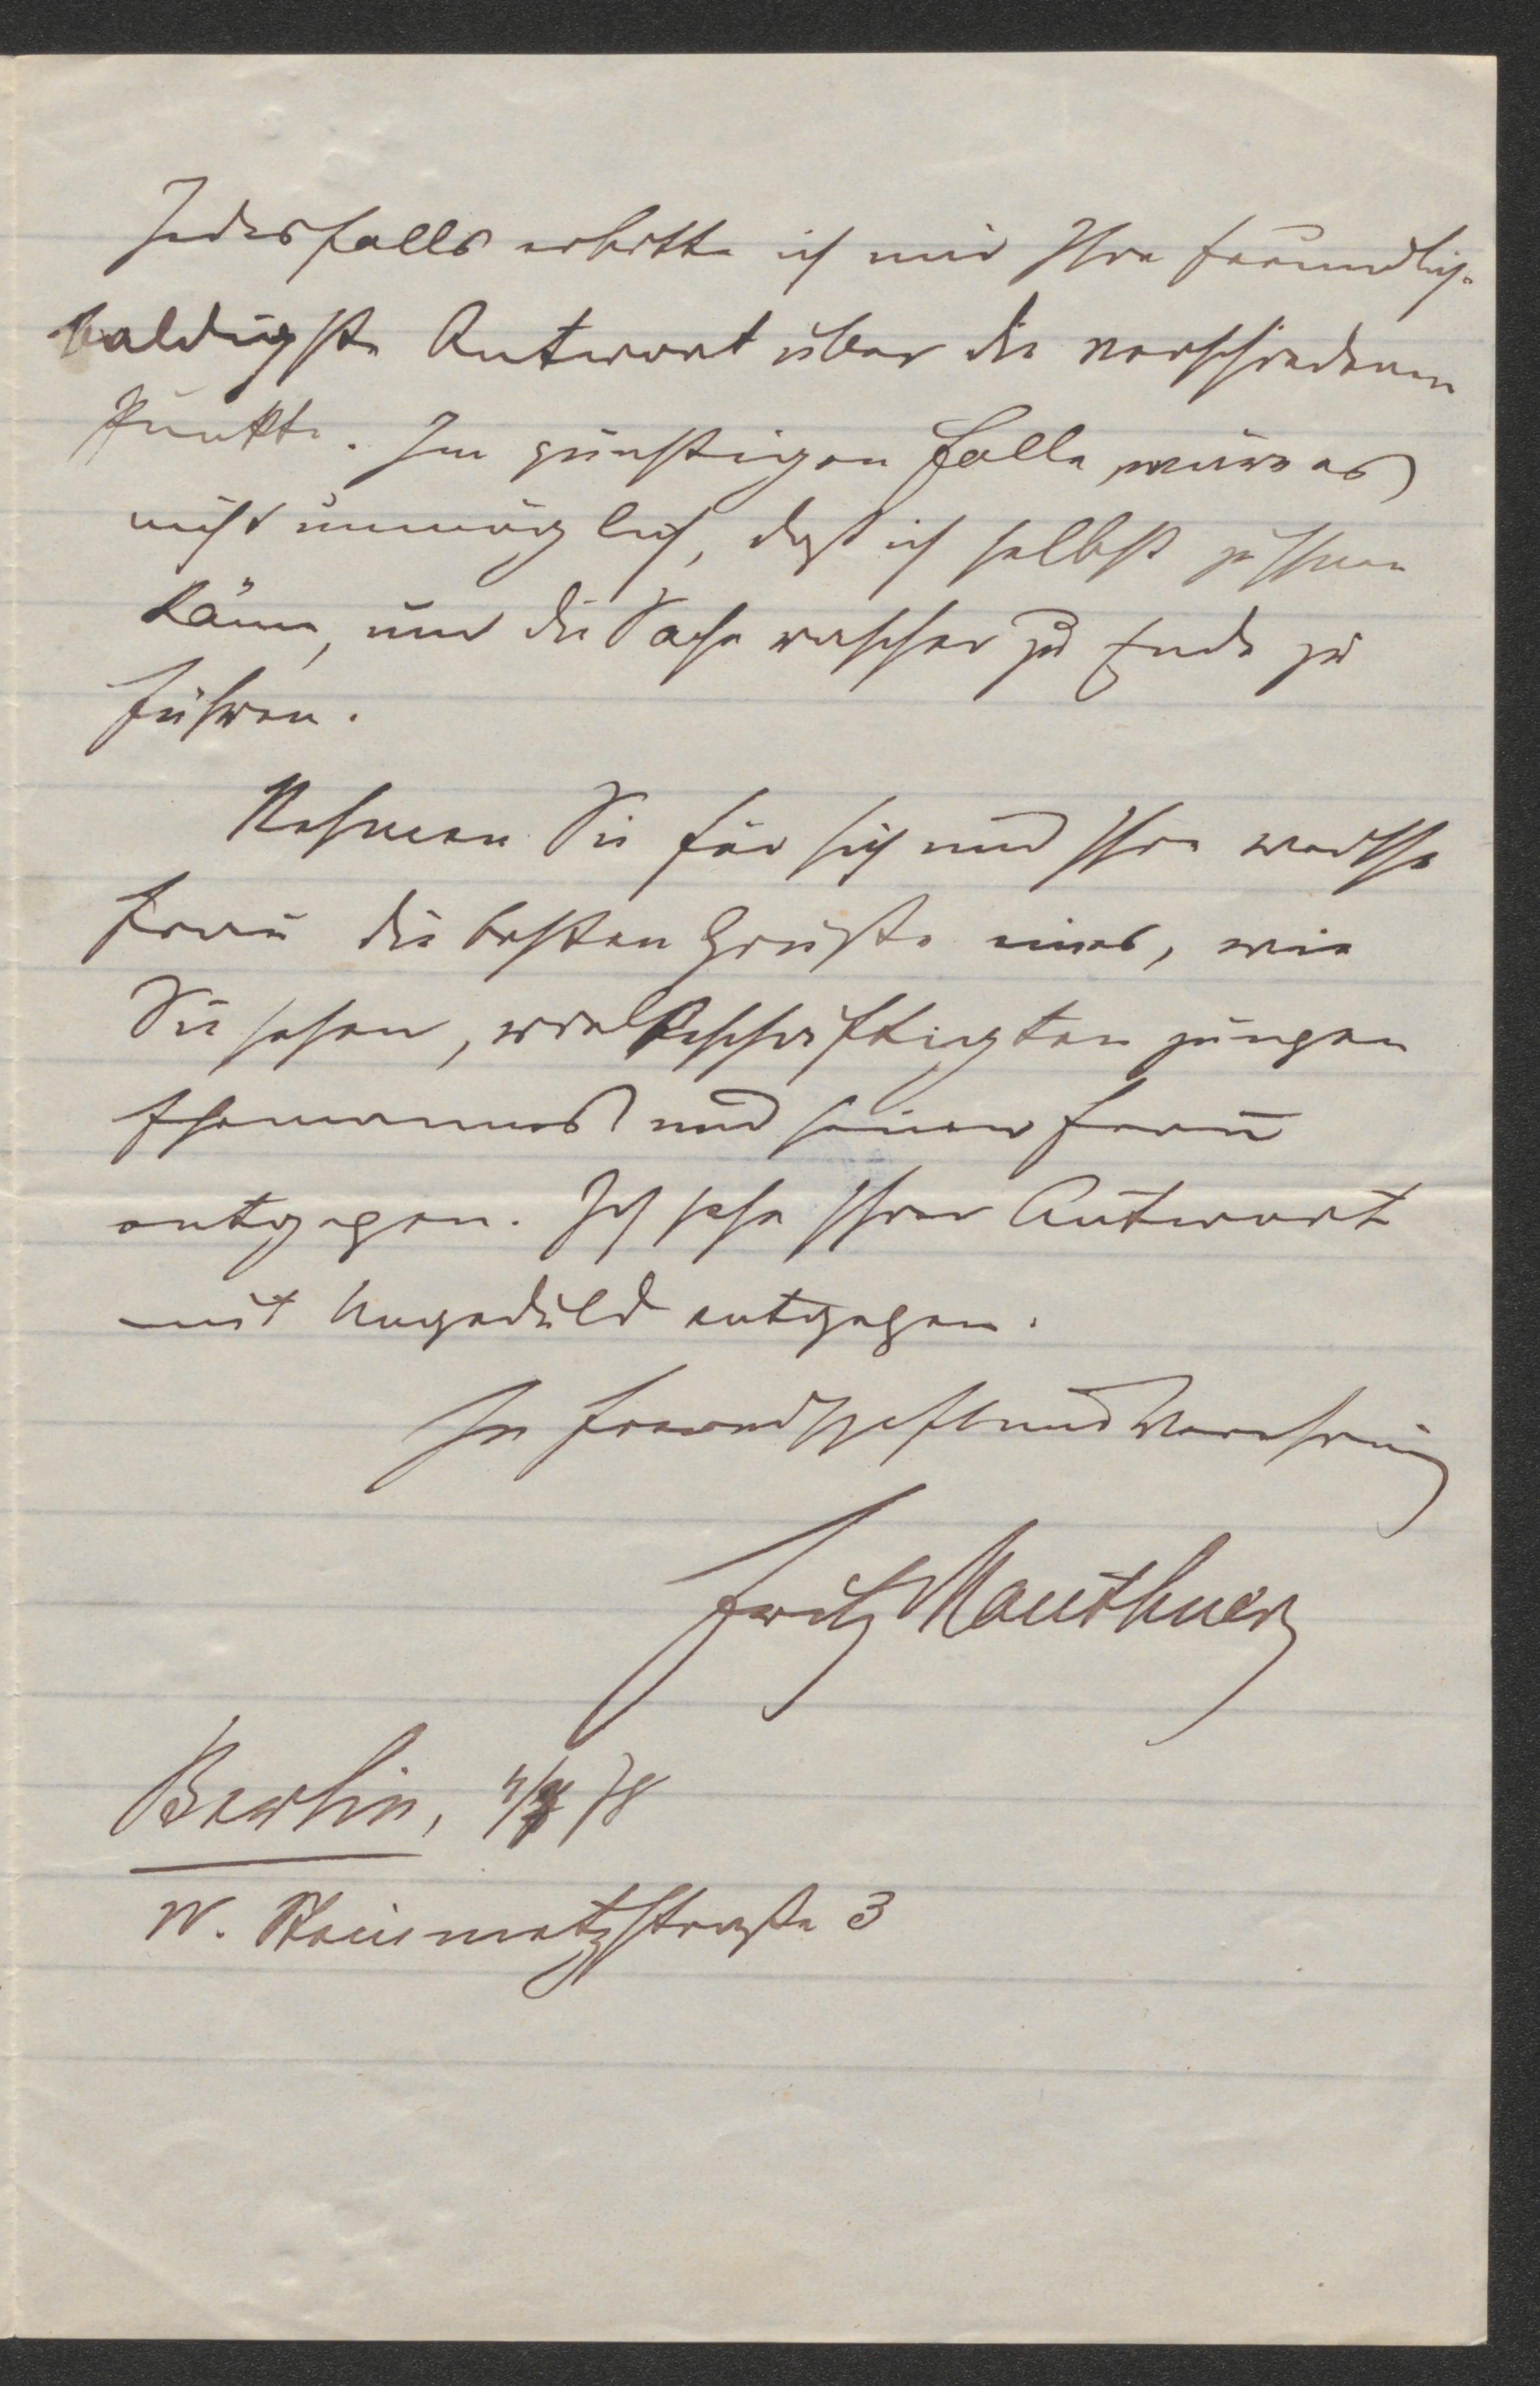 Jedesfalls erbitte ich mir Ihre freundlich-
baldigste Antwort über die verschiedenen
Punkte. Im günstigen Falle wäre es
nicht unmöglich, daß ich selbst zu Ihnen
käme, um die Sache rascher zu Ende zu
führen.
Nehmen Sie für sich und Ihre werthe
Frau die besten Grüße eines, wie
Sie sehen, vielbeschäftigten jungen
Ehemannes und seiner Frau
entgegen. Ich sehe Ihrer Antwort
mit Ungeduld entgegen.
In Freundschaft und Verehrung
Fritz Mauthner
Berlin, 78
W. Steinmetzstraße 3